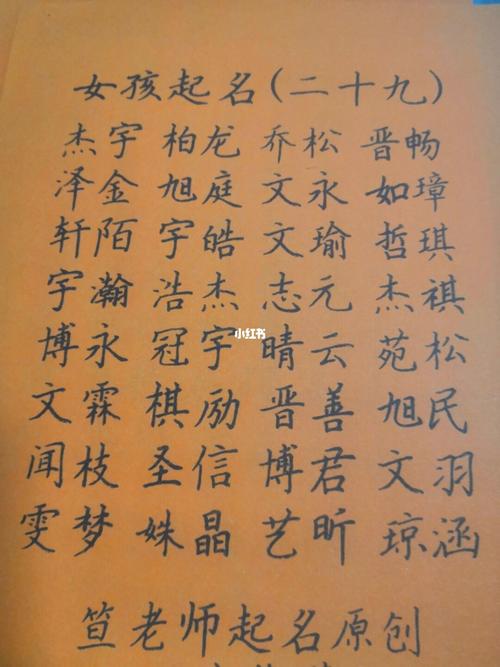 女孩起名(二十九)
杰宇 柏龙 乔松 晋畅
泽金 旭庭 文永 如璋
轩陌 宇皓 文瑜 哲琪
宇瀚 浩杰 志元 杰祺
小红书
博永 冠宇 晴云 苑松
文霖 棋励 晋善 旭民
闻枝 圣信 博君 文羽
雯梦 姝晶 艺昕 琼涵
笪老师起名原创